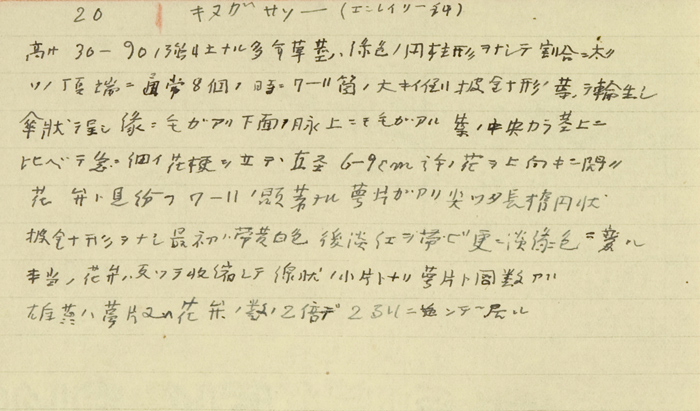 20 キヌガサソー (エンレイソー科)
高サ 30-90ノ強壮ナル多年草 茎ハ緑色ノ円柱形ヲナシテ割合ニ太ク
ソノ頂端ニ通常8個ノ時ニ7-11箇ノ大ナル倒披針形ノ葉ヲ輪生シ
傘状ヲ呈シ縁ニモ毛ガアリ下面ノ脈上ニモ毛ガアル 葉ノ中央カラ茎上ニ
比ベテ急ニ細イ花梗ヲ立テ、直径 6-9cm許ノ花ヲ上向キニ開ク
花弁ト見紛フ 7-11ノ顕著ナル萼片ガアリ 尖ツタ長楕円状
披針形ヲナシ最初ハ帯黄白色 後淡紅ヲ帯ビ更ニ淡緑色ニ変ル
本当ノ花弁ハ反ツテ収縮シテ線状ノ小片トナリ 萼片ト同数アリ
雄蕊ハ萼片又ハ花弁ノ数ノ2倍デ 2列ニ並ンデ居ル